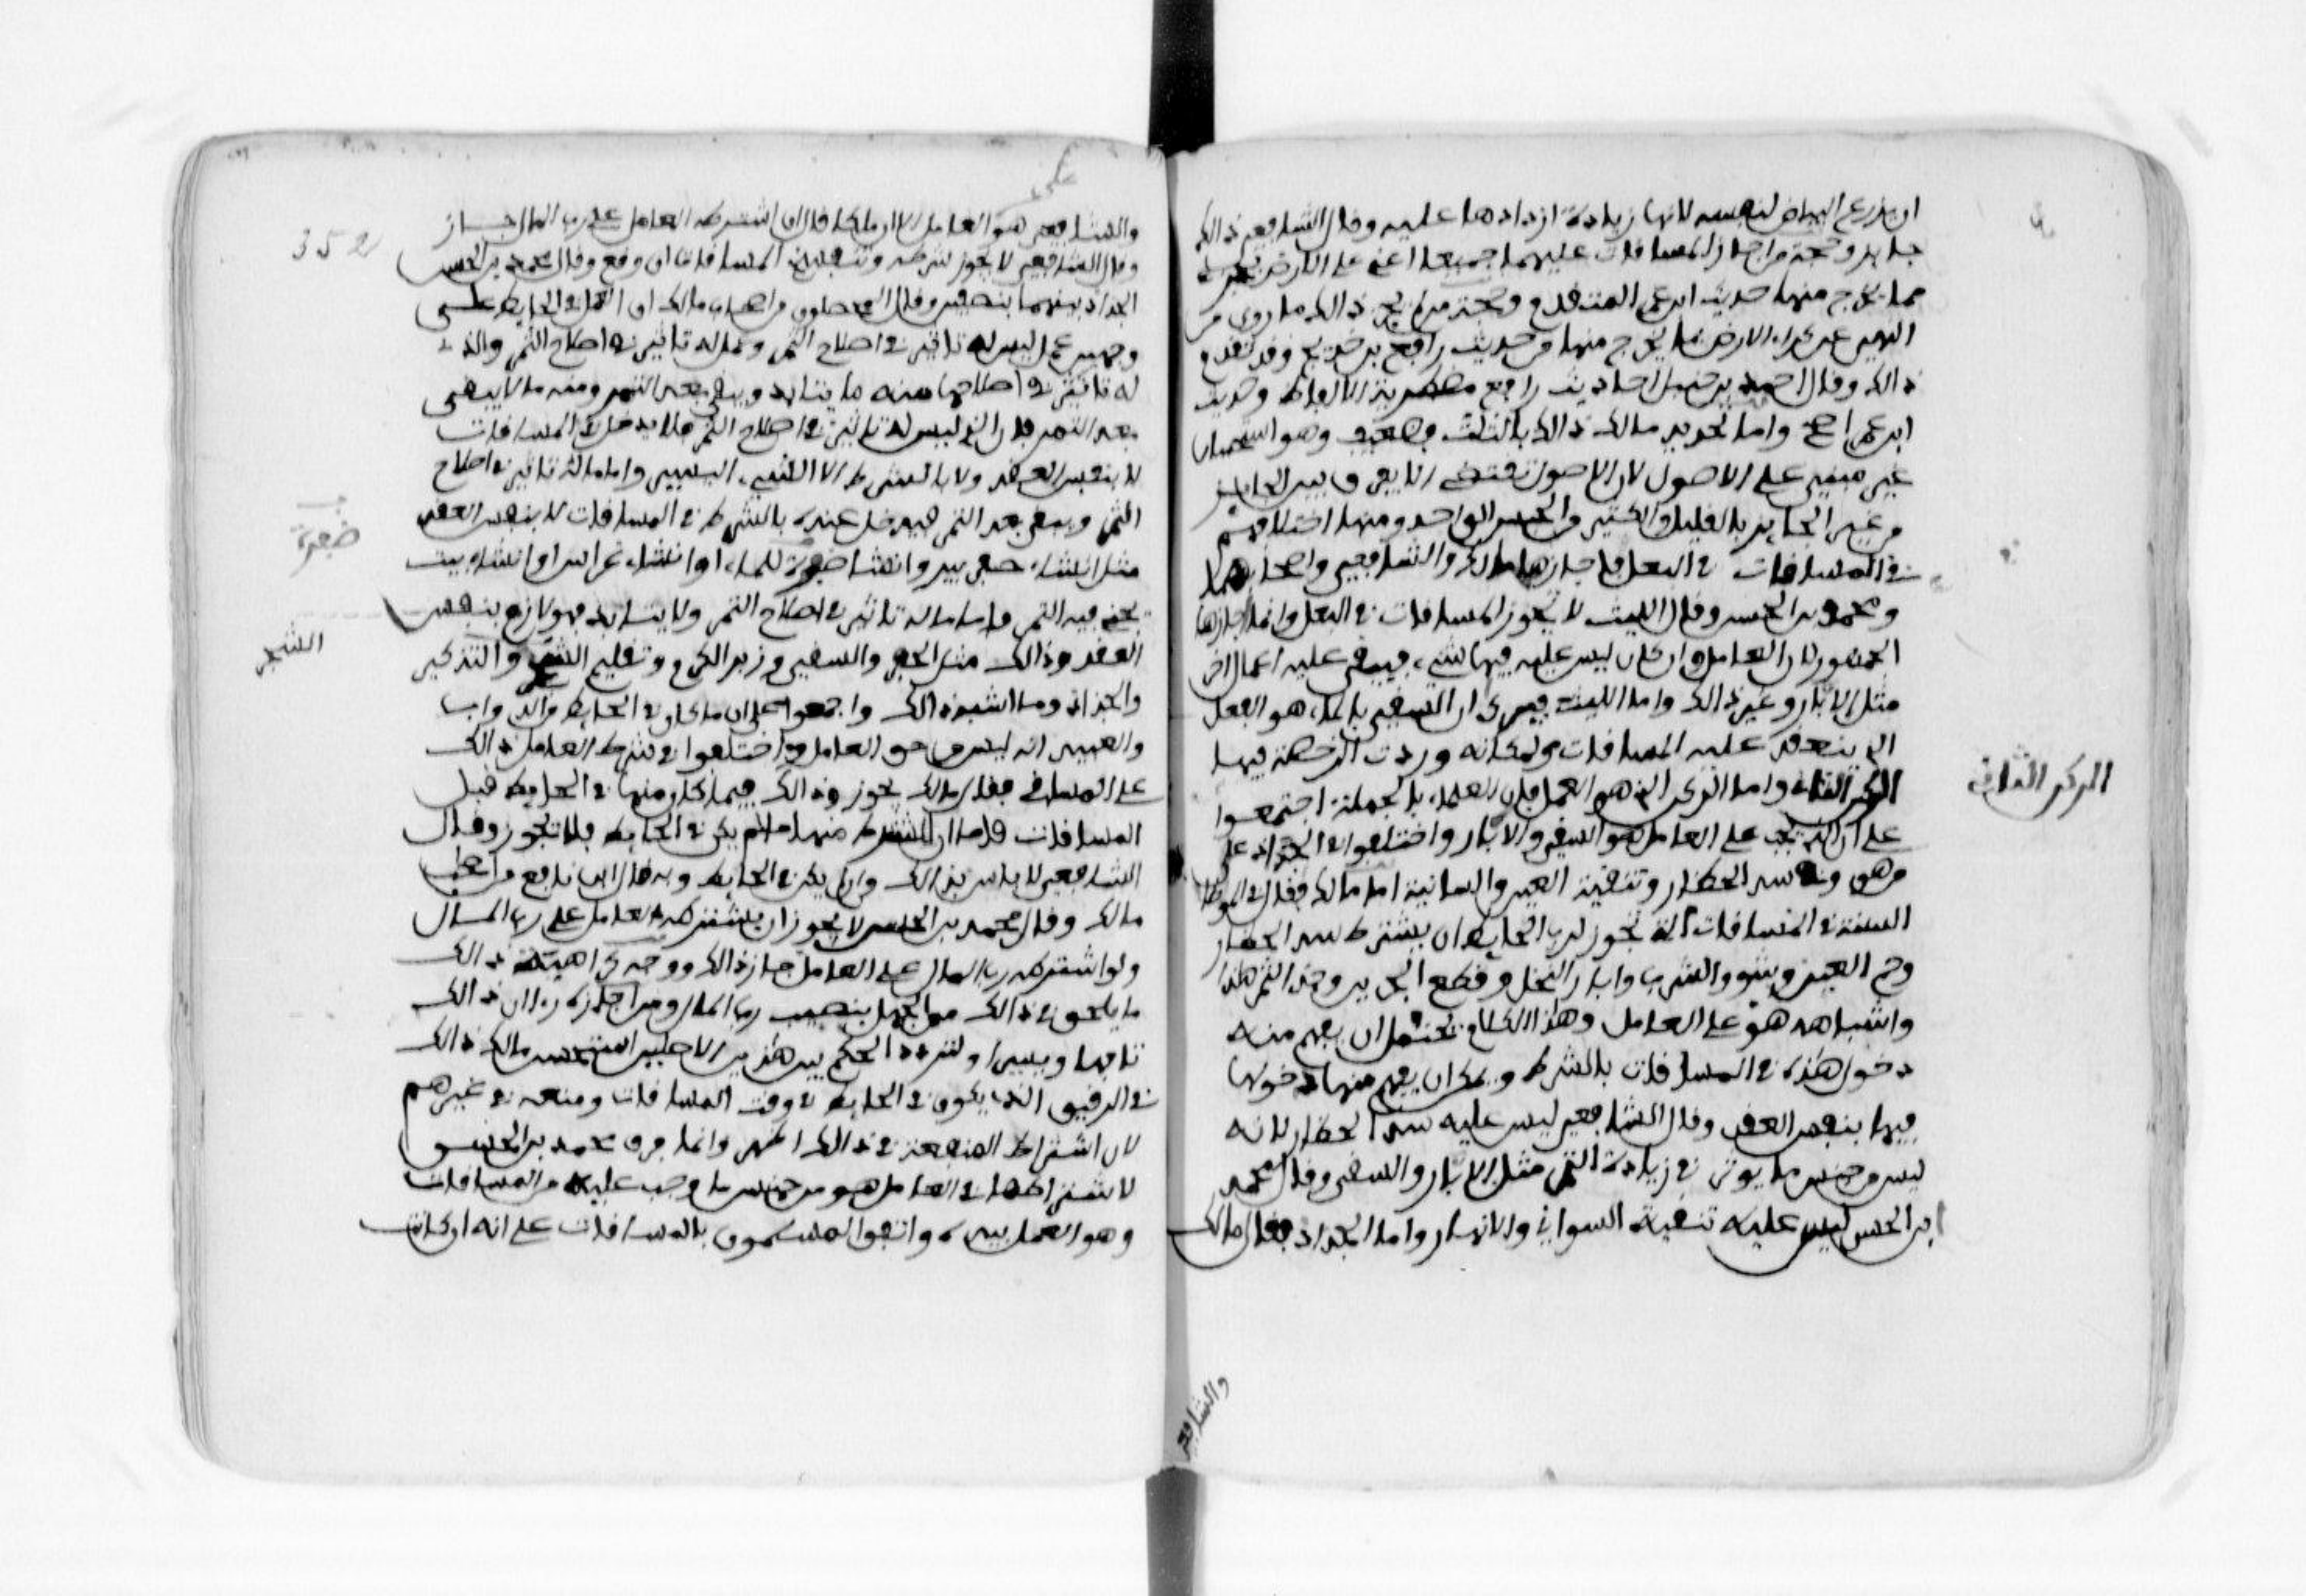 ان يزرع البياض لنفسه لانها زيادة ازدادها عليه وقال الشافعي ذالك
جايز وحجة من اجاز المساقات عليهما جميعا اعني على الارض بجزء
مما يخرج منها حديث ابن عمر المتقدم وحجة من لم يجز ذالك ما روي من
النهي عن كراء الارض بما يخرج منها من حديث رافع بن خديج وقد تقدم
ذالك وقال احمد بن حنبل احاديث رافع مضطربة الالفاظ وحديث
ابن عمر اصح واما تحديد مالك ذالك بالثلث فضعيف وهو استحسان
غير مبني على الاصول لان الاصول تقتضي الا يفرق بين الجايز
من غير الجايز بالقليل والكثير من الجنس الواحد ومنها اختلافهم
في المساقات في البعل فاجازها مالك والشافعي واصحابهما
ومحمد بن الحسن وقال الليث لا تجوز المساقات في البعل وانما اجازها
الجمهور لان العامل وان كان ليس عليه فيها سقي فيبقى عليه اعمال اخر
مثل الابار وغير ذالك واما الليث فيرى ان السقي بالماء هو الفعل
الذي تنعقد عليه المساقات ولمكانه وردت الرخصة فيها
الركن الثاني واما الركن الذي هو العمل فان العلماء بالجملة اجمعوا
على ان الذي يجب على العامل هو السقي والابار واختلفوا في الجداد على
من هو وفي سد الحظار وتنقية العين والسانية اما مالك فقال في الموطا
السنة في المساقات التي تجوز لرب الحايط ان يشترط سد الحظار
وخم العين وشرو الشرب وابار النخل وقطع الجريد وجد الثمر هذا
واشباهه هو على العامل وهذا الكلام يحتمل ان يفهم منه
دخول هذه في المساقات بالشرط ويمكن ان يفهم منها دخولها
فيها بنفس العقد وقال الشافعي ليس عليه سد الحظار لانه
ليس من جنس ما يوثر في زيادة الثمر مثل الابار والسقي وقال محمد
ابن الحسن ليس عليه تنقية السواني والانهار واما الجداد فقال مالك
الركن الثاني
والشافعي
والشافعي هو على العامل الا ان مالكا قال ان اشترطه العامل على رب المال جاز
وقال الشافعي لا يجوز شرطه وتنفسخ المساقات ان وقع وقال محمد بن الحسن
الجداد بينهما بنصفين وقال المحصلون من اصحاب مالك ان العمل في الحايط على
وجهين عمل ليس له تاثير في اصلاح الثمر وعمل له تاثير في اصلاح الثمر والذي
له تاثير في اصلاحها منه ما يتابد ويبقى بعد الثمر ومنه ما لا يبقى
بعد الثمر فاما الذي ليس له تاثير في اصلاح الثمر فلا يدخل في المساقات
لا بنفس العقد ولا بالشرط الا الشيء اليسير واما ما له تاثير في اصلاح
الثمر ويبقى بعد الثمر فيدخل عنده بالشرط في المساقات لا بنفس العقد
مثل انشاء حفر بير وانشاء ضفيرة للماء او انشاء غراس او انشاء بيت
يجنى فيه الثمر واما ما له تاثير في اصلاح الثمر ولا يتابد فهو لازم بنفس
العقد وذالك مثل الحفر والسقي وزبر الكرم وتقليم الشجر والتذكير
والجذاذ وما اشبه ذالك واجمعوا على ان ما كان في الحايط من الدواب
والعبيد انه ليس من حق العامل واختلفوا في شرط العامل ذالك
على المساقي فقال مالك يجوز ذالك فيما كان منها في الحايط قبل
المساقات فاما ان اشترط منها ما لم يكن في الحايط فلا يجوز وقال
الشافعي لا باس بذالك وان لم يكن في الحايط وبه قال ابن نافع من اصحاب
مالك وقال محمد بن الحسن لا يجوز ان يشترطه العامل على رب المال
ولو اشترطه رب المال على العامل جاز ذالك ووجه كراهيته ذالك
ما يلحق في ذالك من الجهل بنصيب رب المال ومن اجازه راى ان ذالك
تافها ويسيرا ولتردد الحكم بين هذين الاصلين استحسن مالك ذالك
في الرقيق الذي يكون في الحايط في وقت المساقات ومنعه في غيرهم
لان اشتراط المنفعة في ذالك اظهر وانما فرق محمد بن الحسن
لان اشتراطها على العامل هو من جنس ما وجب عليه من المساقات
وهو العمل بيده واتفق القائلون بالمساقات على انه ان كانت
352
ضفيرة
الشجر